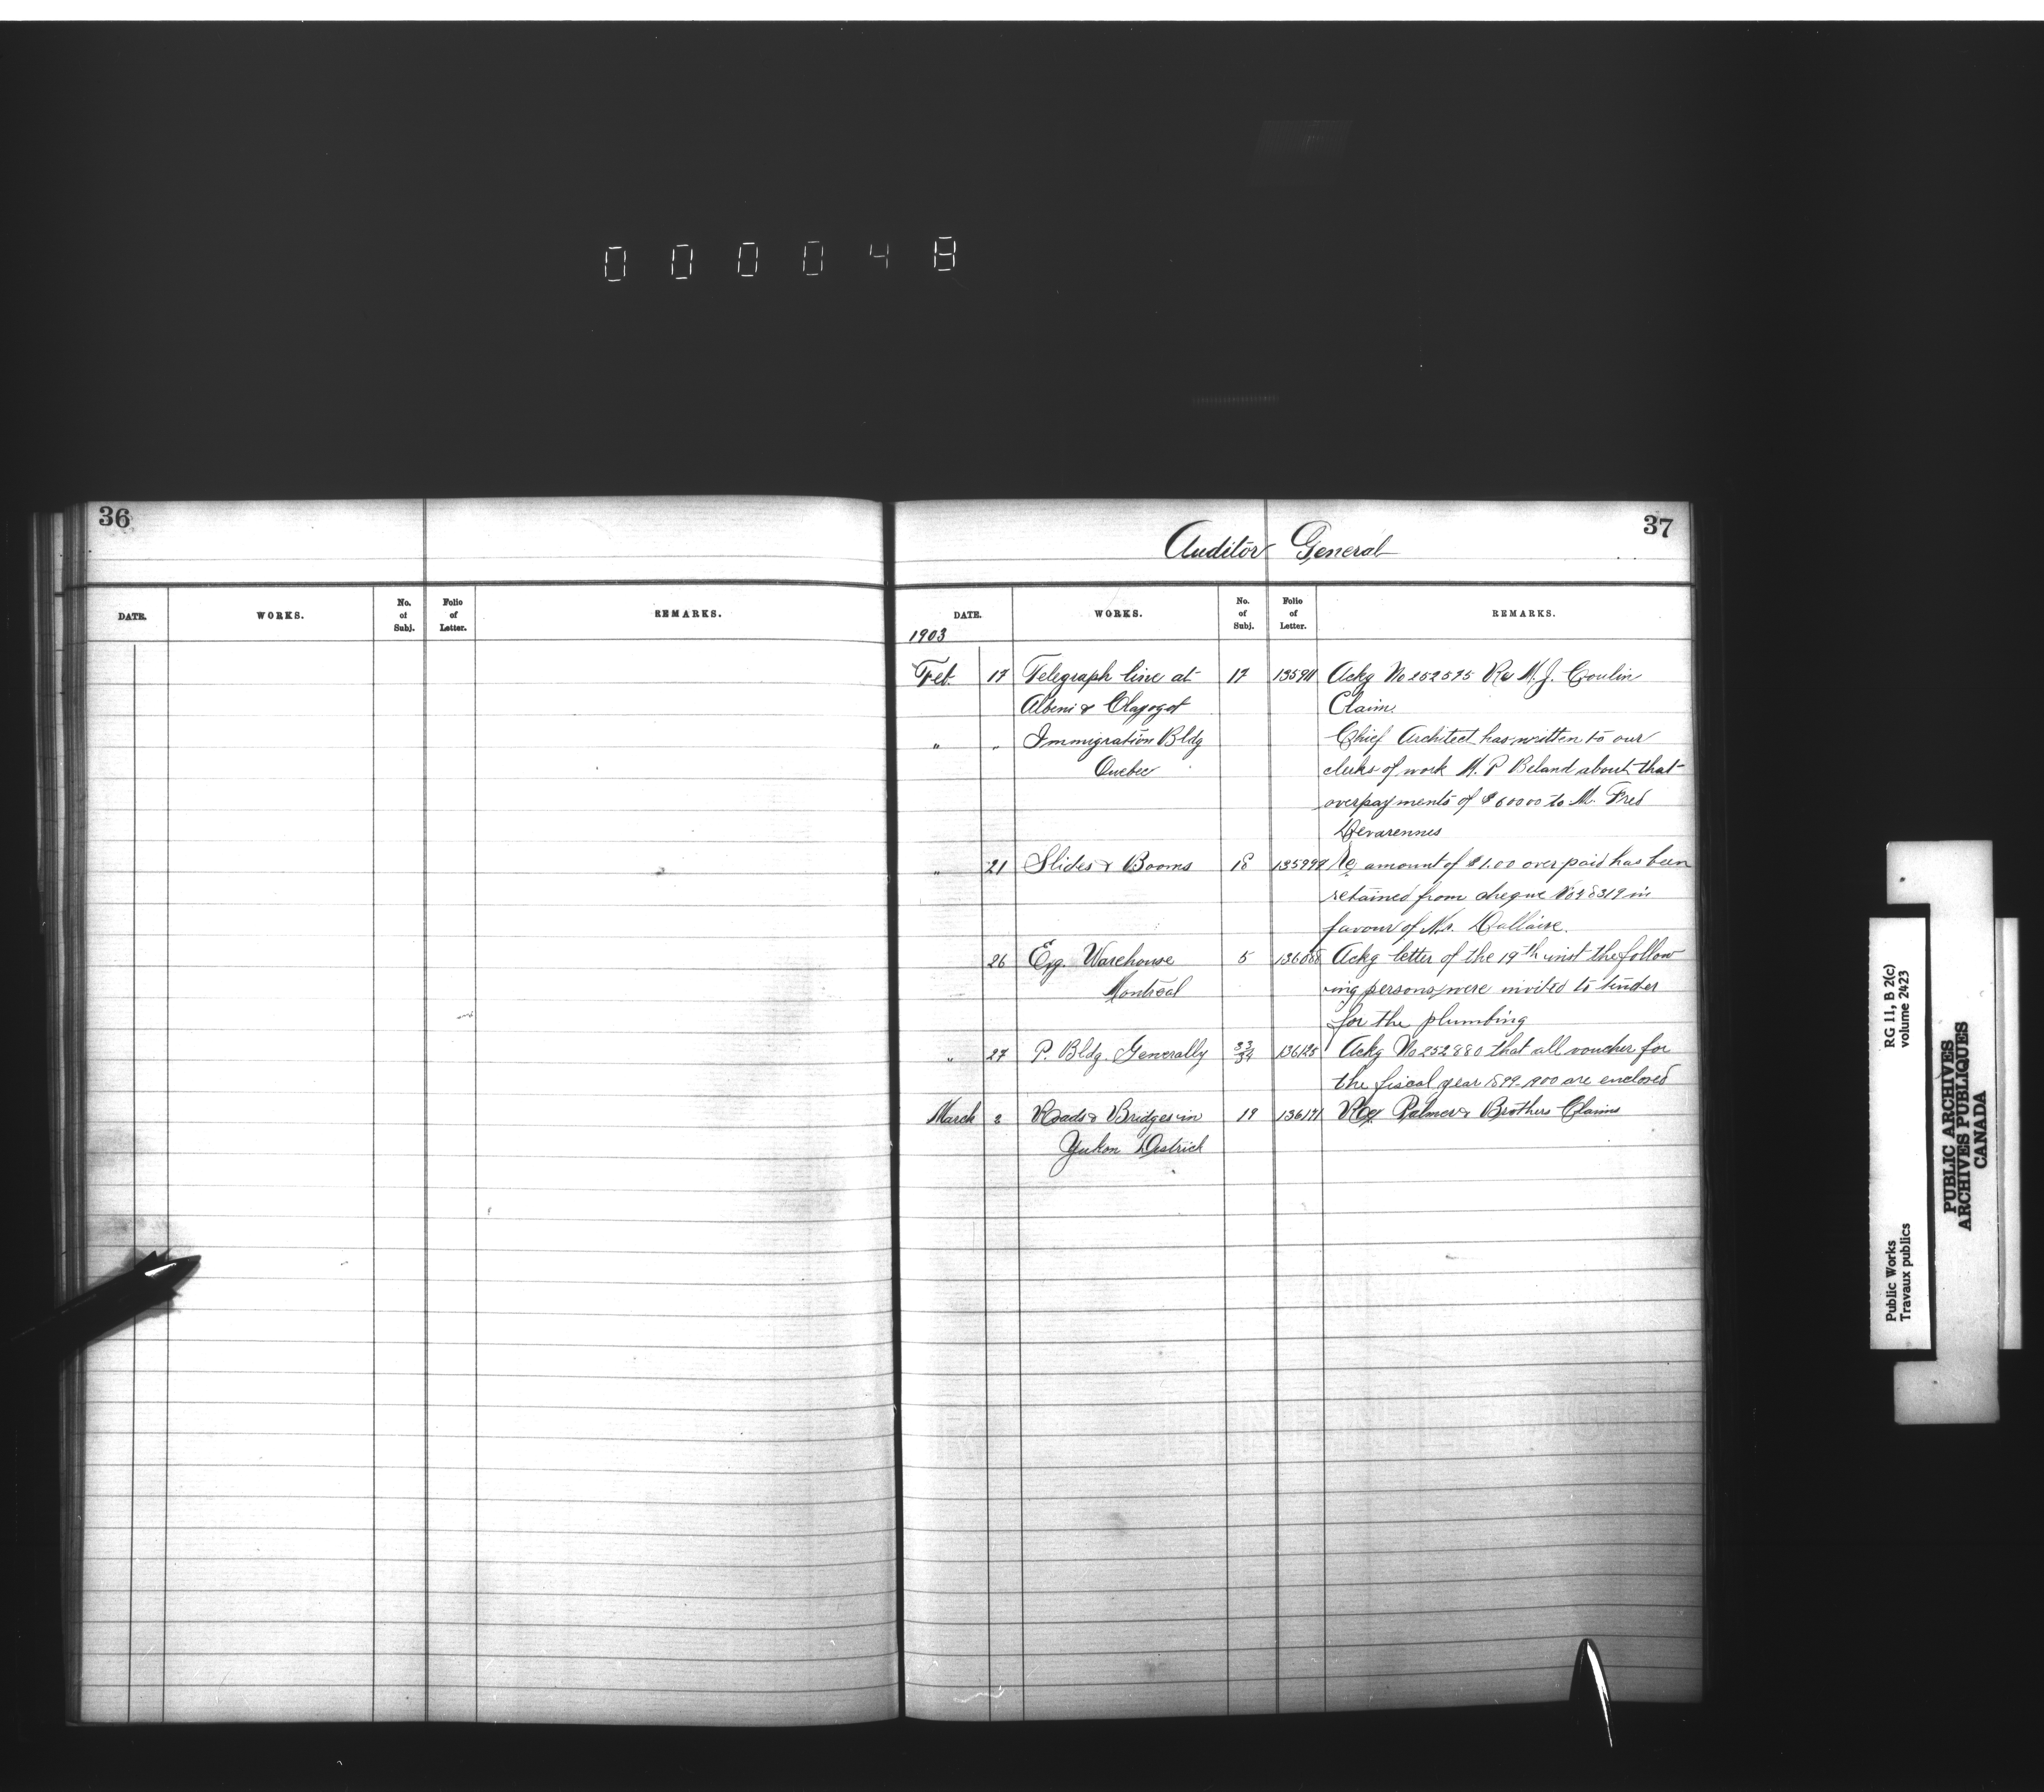 000048
36
DATE. WORKS. No. of Subj. Folio of Letter. REMARKS.
37
Auditor General
DATE. WORKS. No. of Subj. Folio of Letter. REMARKS.
1903
Feb. 17 Telegraph line at 17 Ackg No 252575 Re M. J. Conlin
Alberni & Claim
" " Immigration Bldg Chief Architect has written to our
Quebec clerks of work M. P Beland about that
overpayments of $ to M. Fred
Devarennes
" 21 Slides & Booms 18 Re amount of $1.00 over paid has been
retained from cheque in
favour of Dallaire.
26 Exg. Warehouse 5 Ackg letter of the 19th inst the follow
Montreal ing persons were invited to tender
for the plumbing
" 27 P. Bldg. Generally 33/34 136125 Ackg No 252880 that all voucher for
the fiscal year 1899-1900 are enclosed
March 3 Roads & Bridges in 19 136191 Re Palmer & Brothers Claims
Yukon District
RG 11, B 2(c)
volume 2423
Public Works
Travaux publics
PUBLIC ARCHIVES
ARCHIVES PUBLIQUES
CANADA